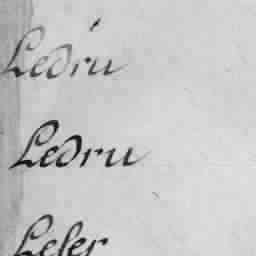 Ledru
Ledru
Leler